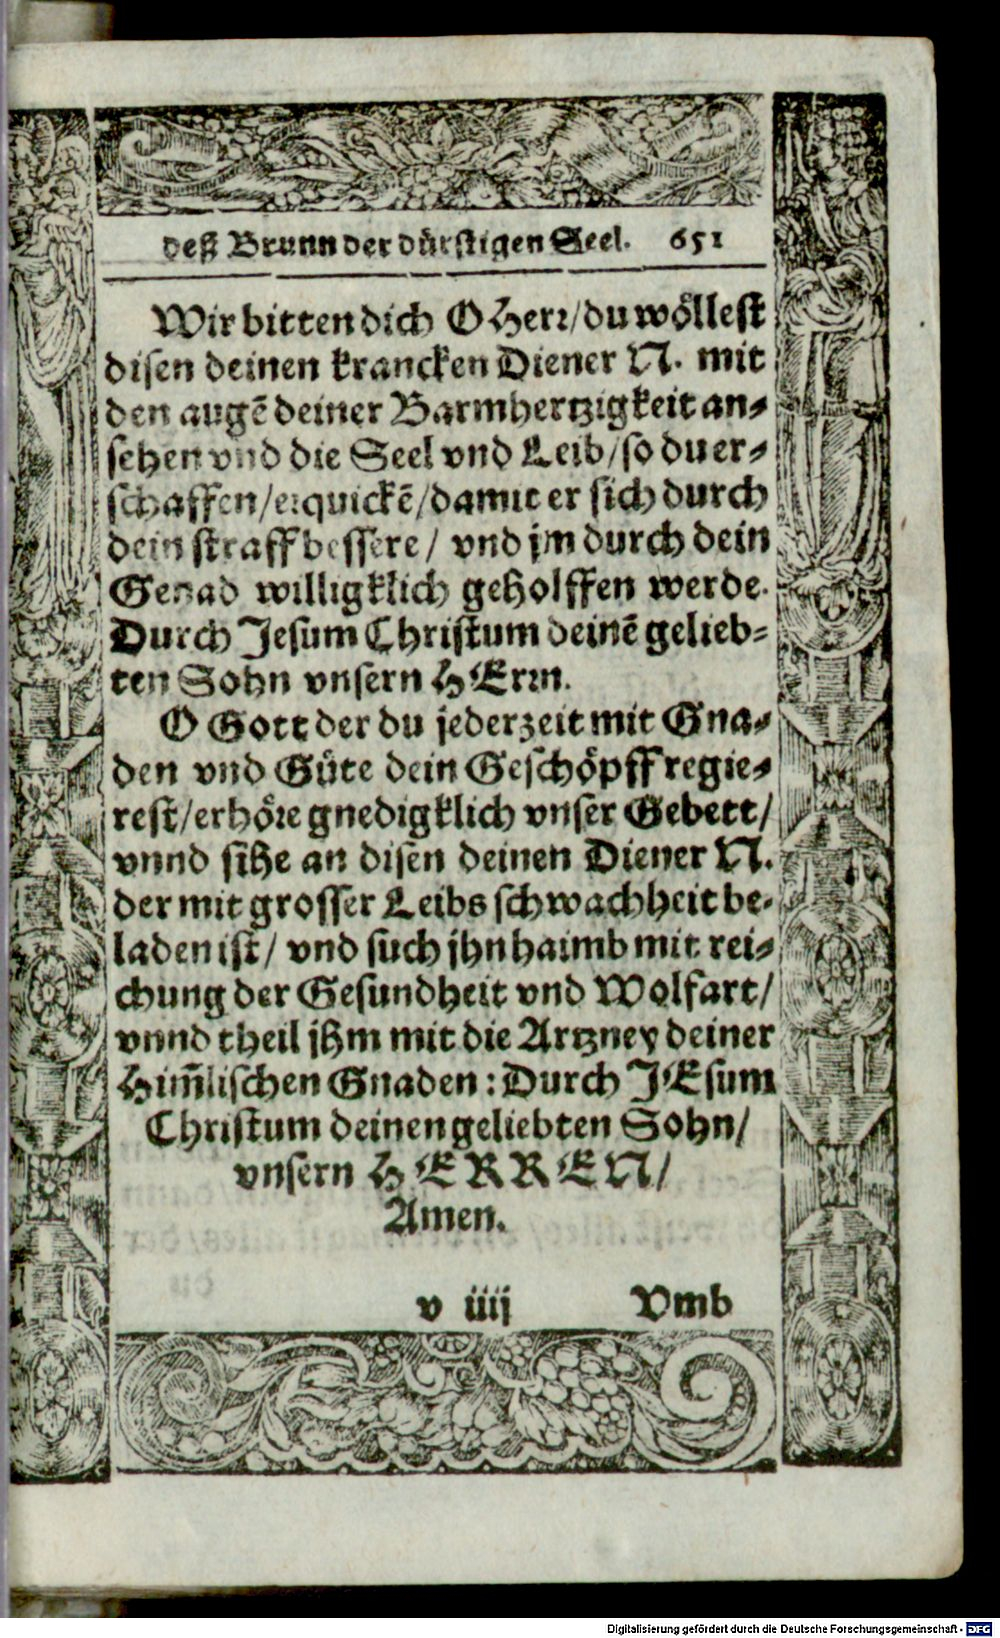 deß Brunn der dürstigen Seel. 651
Wir bitten dich O Herr/du wöllest
disen deinen krancken Diener N. mit
den augē deiner Barmhertzigkeit an-
sehen vnd die Seel vnd Leib/so du er-
schaffen/erquickē/damit er sich durch
dein straff bessere/ vnd jm durch dein
Genad willigklich geholffen werde.
Durch Jesum Christum deinē gelieb-
ten Sohn vnsern HErrn.
O Gott der du jederzeit mit Gna-
den vnd Güte dein Geschöpff regie-
rest/erhöre gnedigklich vnser Gebett/
vnnd sihe an disen deinen Diener N.
der mit grosser Leibs schwachheit be-
laden ist/ vnd such jhn haimb mit rei-
chung der Gesundheit vnd Wolfart/
vnnd theil jhm mit die Artzney deiner
Him̄lischen Gnaden: Durch JEsum
Christum deinen geliebten Sohn/
vnsern HERREN/
Amen.
v iiij Vmb
Digitalisierung gefördert durch die Deutsche Forschungsgemeinschaft - DFG